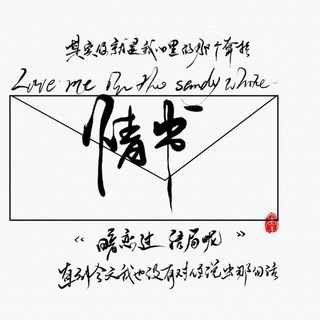 其实你就是我心里的那个奔赴
Love me for the sandy white
情书
“暗恋过 结局呢”
直到今天我也没有对你说出那句话